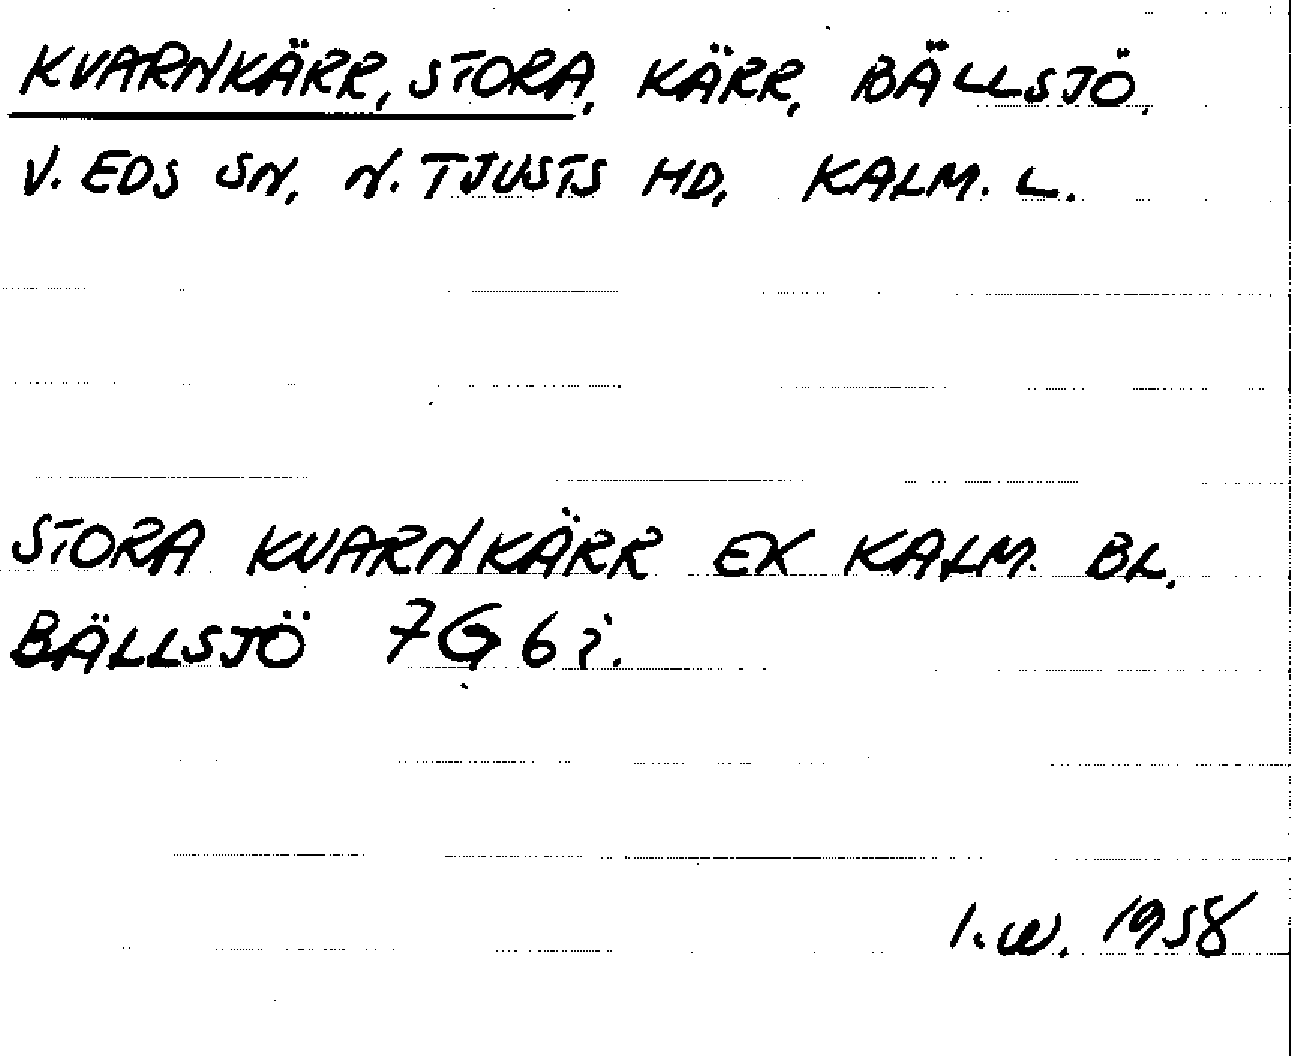 KVARNKÄRR, STORA, KÄRR, BÄLLSJÖ,
V. EDS SN, N. TJUSTS HD, KALM. L.
STORA KVARNKÄRR EK KALM. BL.
BÄLLSJÖ 7G6i.
I.W. 1958